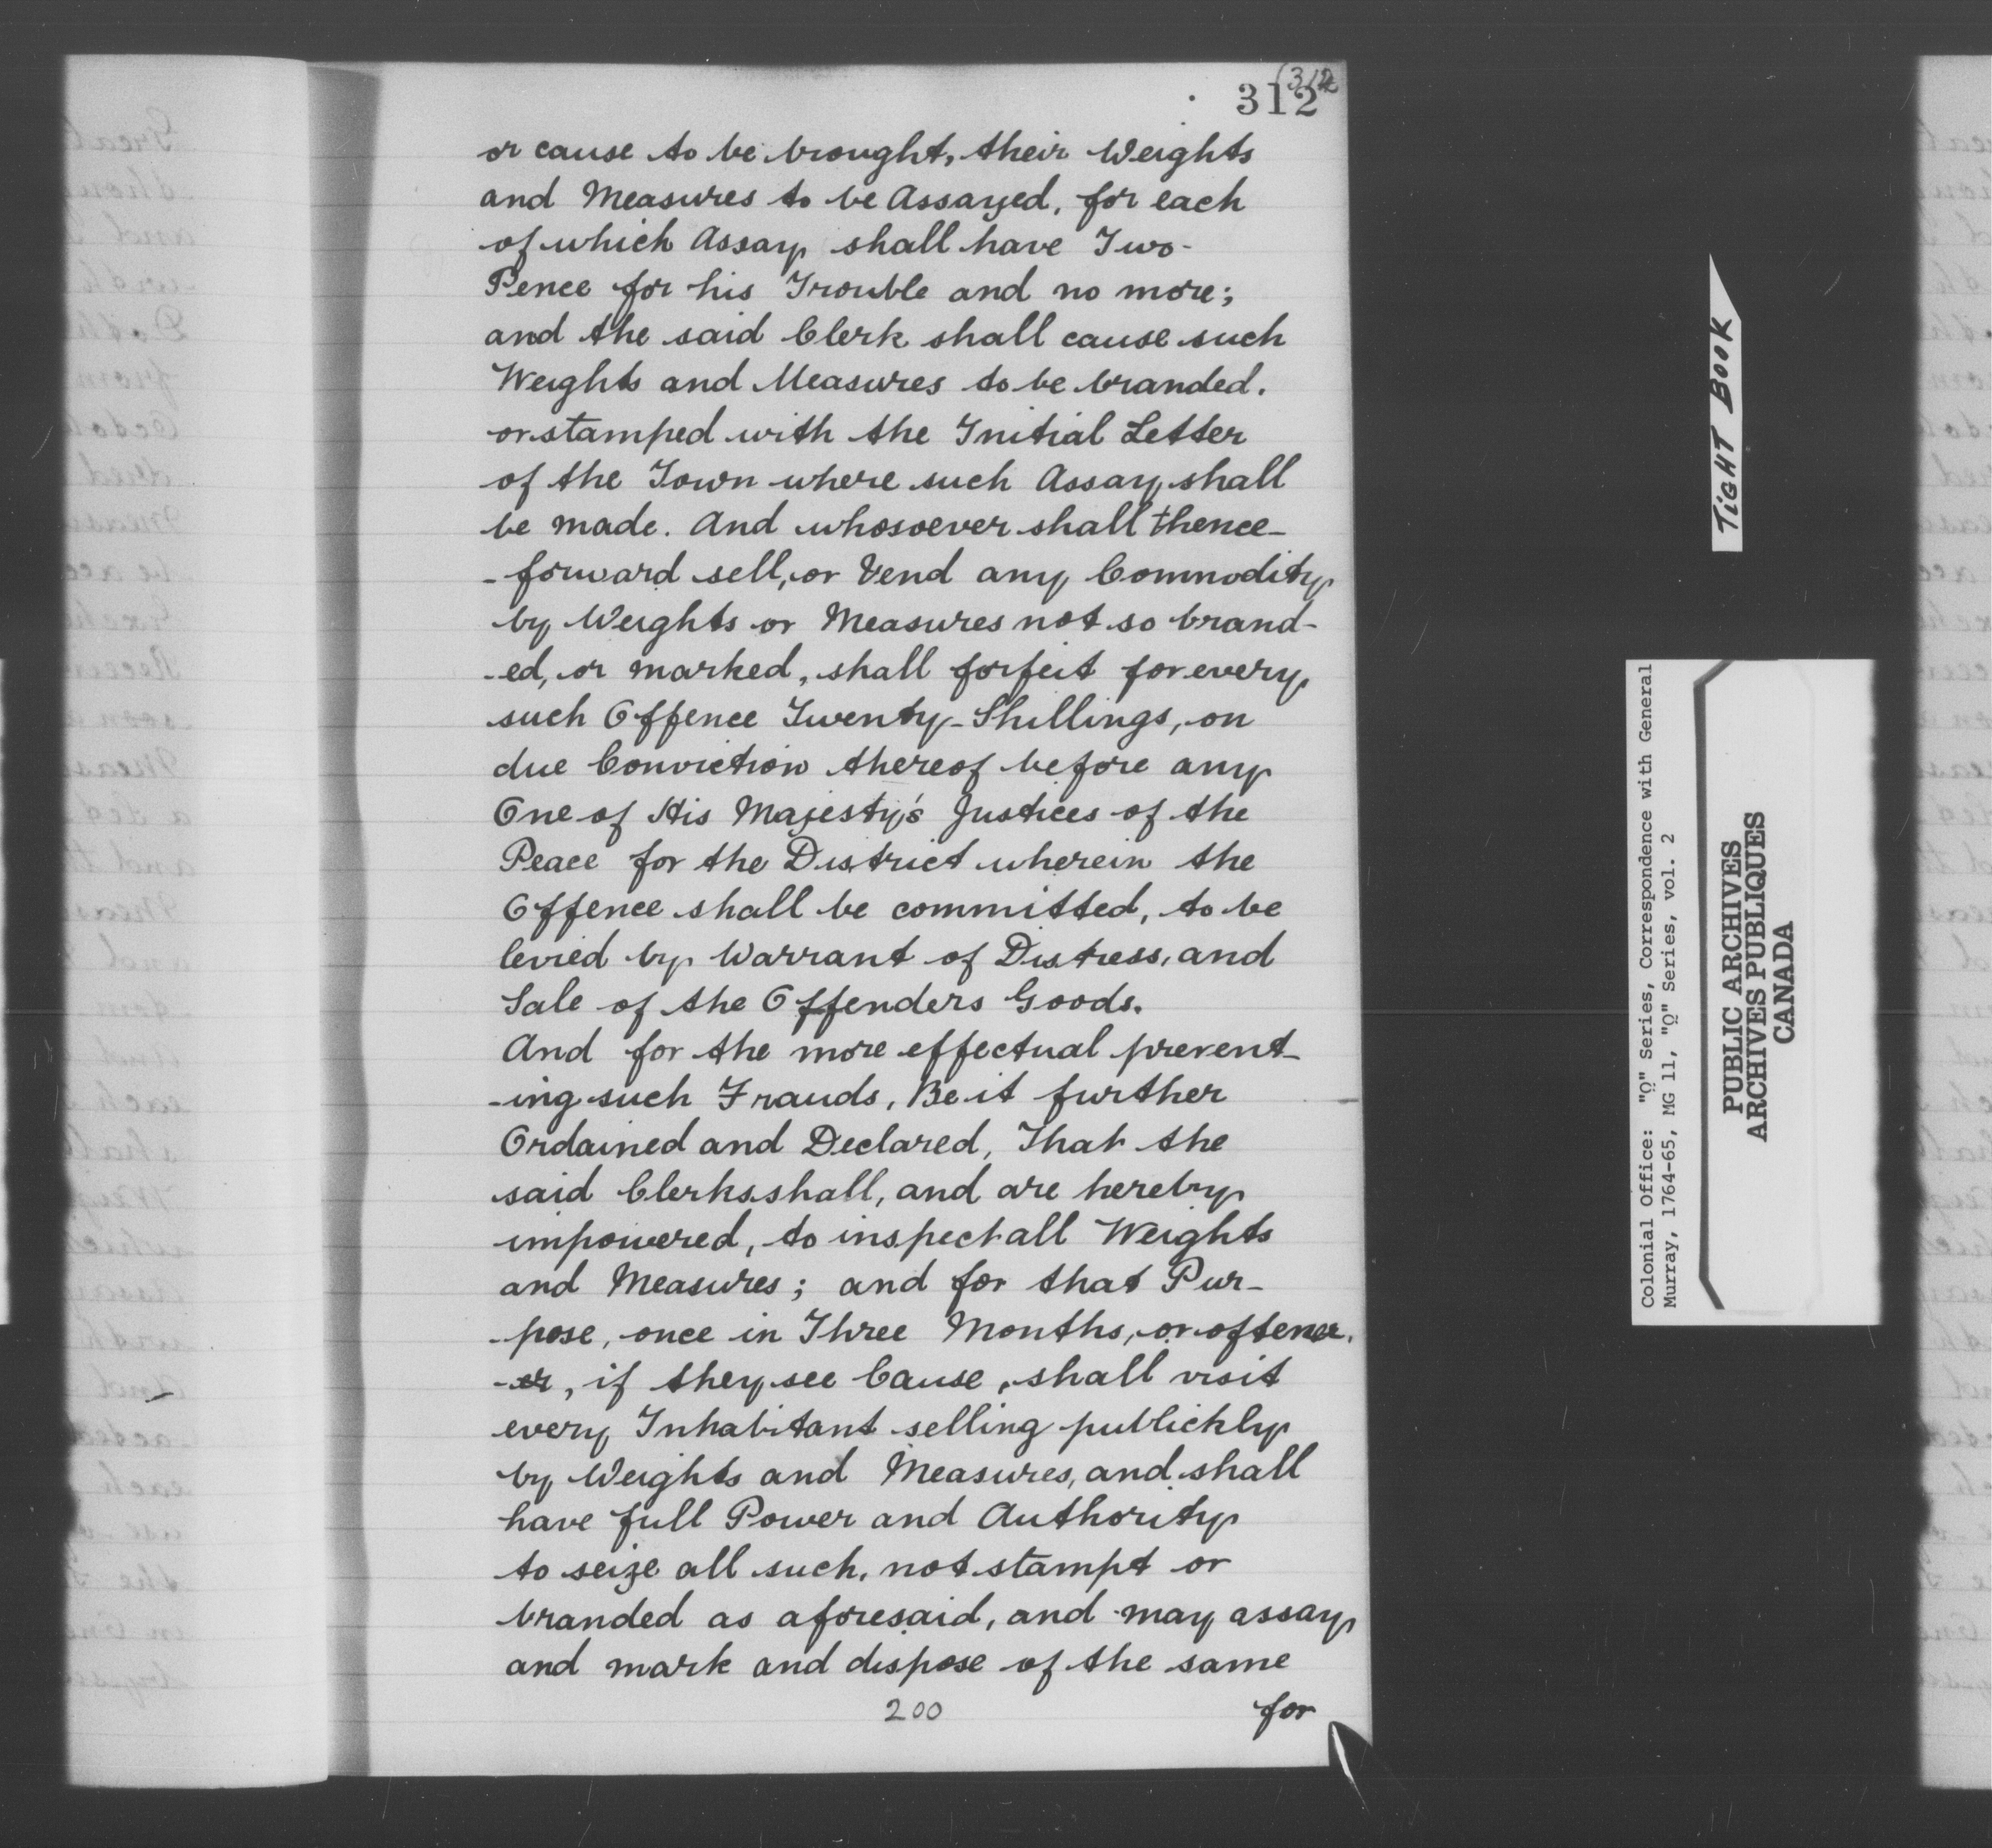 (312
312
or cause to be brought, their Weights
and Measures to be Assayed, for each
of which Assay shall have Two-
Pence for his Trouble and no more;
and the said Clerk shall cause such
Weights and Measures to be branded.
or stamped with the Initial Letter
of the Town where such Assay shall
be made. And whosoever shall thence-
-forward sell, or Vend any Commodity
by Weights or Measures not so brand-
-ed, or marked, shall forfeit for every
such Offence Twenty-Shillings, on
due Conviction thereof before any
One of His Majesty's Justices of the
Peace for the District wherein the
Offence shall be committed, to be
levied by Warrant of Distress, and
Sale of the Offenders Goods.
And for the more effectual prevent-
-ing such Frauds, Be it further
Ordained and Declared, That the
said Clerks shall, and are hereby
impowered, to inspect all Weights
and Measures; and for that Pur-
-pose, once in Three Months, or oftener.
-er, if they see Cause, shall visit
every Inhabitant selling publickly
by Weights and Measures, and shall
have full Power and Authority
to seize all such, not stampt or
branded as aforesaid, and may assay
and mark and dispose of the same
200 for
TIGHT BOOK
Colonial Office: "Q" Series, Correspondence with General
Murray, 1764-65, MG 11, "Q" Series, vol. 2
PUBLIC ARCHIVES
ARCHIVES PUBLIQUES
CANADA